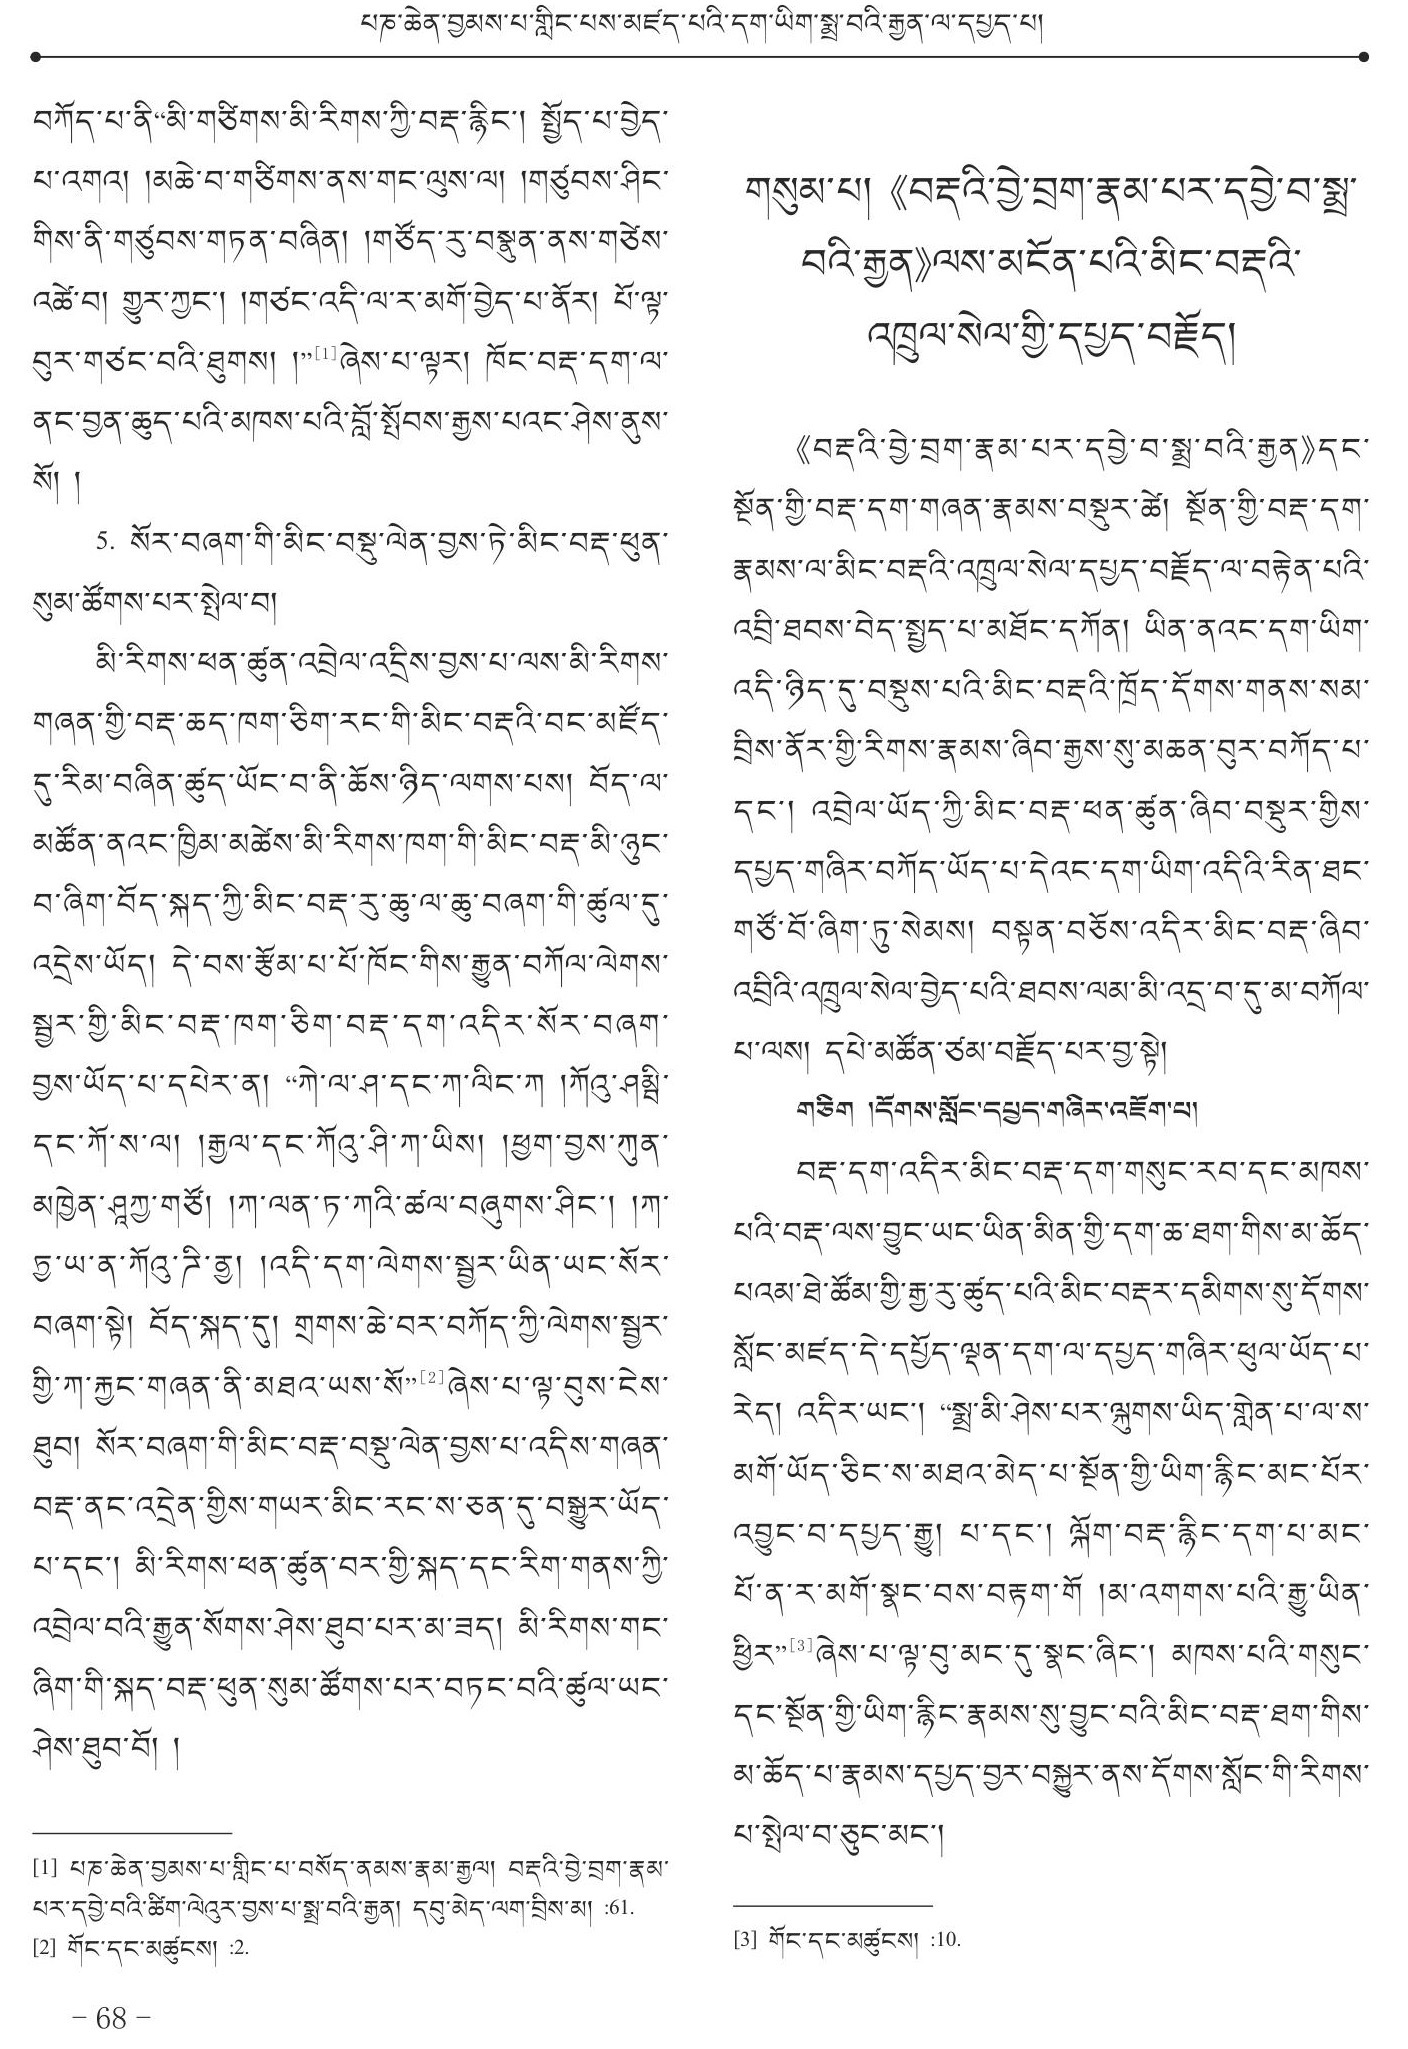 པཎ་ཆེན་བྱམས་པ་གླིང་པས་མཛད་པའི་དག་ཡིག་སྨྲ་བའི་རྒྱན་ལ་དཔྱད་པ།
བཀོད་པ་ནི“མི་གཙིགས་མི་རིགས་ཀྱི་བརྡ་རྙིང་། སྤྱོད་པ་བྱེད་
པ་འགའ། །མཆེ་བ་གཙིགས་ནས་གང་ལུས་ལ། །གཙུབས་ཤིང་
གིས་ནི་གཙུབས་གཏན་བཞིན། །གཙོད་རུ་བསྣུན་ནས་གཙེས་
འཚེ་བ། གྱུར་ཀྱང་། །གཙང་འདི་ལ་ར་མགོ་བྱེད་པ་ནོར། པོ་ལྟ་
བུར་གཙང་བའི་ཐུགས། །”[1]ཞེས་པ་ལྟར། ཁོང་བརྡ་དག་ལ་
ནང་བྱན་ཆུད་པའི་མཁས་པའི་བློ་སྤོབས་རྒྱས་པའང་ཤེས་ནུས་
སོ། །
5. སོར་བཞག་གི་མིང་བསྡུ་ལེན་བྱས་ཏེ་མིང་བརྡ་ཕུན་
སུམ་ཚོགས་པར་སྤེལ་བ།
མི་རིགས་ཕན་ཚུན་འབྲེལ་འདྲིས་བྱས་པ་ལས་མི་རིགས་
གཞན་གྱི་བརྡ་ཆད་ཁག་ཅིག་རང་གི་མིང་བརྡའི་བང་མཛོད་
དུ་རིམ་བཞིན་ཚུད་ཡོང་བ་ནི་ཆོས་ཉིད་ལགས་པས། བོད་ལ་
མཚོན་ནའང་ཁྱིམ་མཚེས་མི་རིགས་ཁག་གི་མིང་བརྡ་མི་ཉུང་
བ་ཞིག་བོད་སྐད་ཀྱི་མིང་བརྡ་རུ་ཆུ་ལ་ཆུ་བཞག་གི་ཚུལ་དུ་
འདྲེས་ཡོད། དེ་བས་རྩོམ་པ་པོ་ཁོང་གིས་རྒྱུན་བཀོལ་ལེགས་
སྦྱར་གྱི་མིང་བརྡ་ཁག་ཅིག་བརྡ་དག་འདིར་སོར་བཞག་
བྱས་ཡོད་པ་དཔེར་ན། “ཀེ་ལ་ཤ་དང་ཀ་ལིང་ཀ །ཀོའུ་ཤམྦི་
དང་ཀོ་ས་ལ། །རྒྱལ་དང་ཀོའུ་ཤི་ཀ་ཡིས། །ཕྱག་བྱས་ཀུན་
མཁྱེན་ཤཱཀྱ་གཙོ། །ཀ་ལན་ཏ་ཀའི་ཚལ་བཞུགས་ཤིང་། །ཀ་
ཏྱ་ཡ་ན་ཀོའུ་ཌི་ནྱ། །འདི་དག་ལེགས་སྦྱར་ཡིན་ཡང་སོར་
བཞག་སྟེ། བོད་སྐད་དུ། གྲགས་ཆེ་བར་བཀོད་ཀྱི་ལེགས་སྦྱར་
གྱི་ཀ་རྐྱང་གཞན་ནི་མཐའ་ཡས་སོ”[2]ཞེས་པ་ལྟ་བུས་ངེས་
ཐུབ། སོར་བཞག་གི་མིང་བརྡ་བསྡུ་ལེན་བྱས་པ་འདིས་གཞན་
བརྡ་ནང་འདྲེན་གྱིས་གཡར་མིང་རང་ས་ཅན་དུ་བསྒྱུར་ཡོད་
པ་དང་། མི་རིགས་ཕན་ཚུན་བར་གྱི་སྐད་དང་རིག་གནས་ཀྱི་
འབྲེལ་བའི་རྒྱུན་སོགས་ཤེས་ཐུབ་པར་མ་ཟད། མི་རིགས་གང་
ཞིག་གི་སྐད་བརྡ་ཕུན་སུམ་ཚོགས་པར་བཏང་བའི་ཚུལ་ཡང་
ཤེས་ཐུབ་བོ། །
[1] པཎ་ཆེན་བྱམས་པ་གླིང་པ་བསོད་ནམས་རྣམ་རྒྱལ། བརྡའི་བྱེ་བྲག་རྣམ་
པར་དབྱེ་བའི་ཚིག་ལེའུར་བྱས་པ་སྨྲ་བའི་རྒྱན། དབུ་མེད་ལག་བྲིས་མ། :61.
[2] གོང་དང་མཚུངས། :2.
གསུམ་པ། 《བརྡའི་བྱེ་བྲག་རྣམ་པར་དབྱེ་བ་སྨྲ་
བའི་རྒྱན》ལས་མངོན་པའི་མིང་བརྡའི་
འཁྲུལ་སེལ་གྱི་དཔྱད་བརྗོད།
《བརྡའི་བྱེ་བྲག་རྣམ་པར་དབྱེ་བ་སྨྲ་བའི་རྒྱན》དང་
སྔོན་གྱི་བརྡ་དག་གཞན་རྣམས་བསྡུར་ཚེ། སྔོན་གྱི་བརྡ་དག་
རྣམས་ལ་མིང་བརྡའི་འཁྲུལ་སེལ་དཔྱད་བརྗོད་ལ་བརྟེན་པའི་
འབྲི་ཐབས་བེད་སྤྱད་པ་མཐོང་དཀོན། ཡིན་ནའང་དག་ཡིག་
འདི་ཉིད་དུ་བསྡུས་པའི་མིང་བརྡའི་ཁྲོད་དོགས་གནས་སམ་
བྲིས་ནོར་གྱི་རིགས་རྣམས་ཞིབ་རྒྱས་སུ་མཆན་བུར་བཀོད་པ་
དང་། འབྲེལ་ཡོད་ཀྱི་མིང་བརྡ་ཕན་ཚུན་ཞིབ་བསྡུར་གྱིས་
དཔྱད་གཞིར་བཀོད་ཡོད་པ་དེའང་དག་ཡིག་འདིའི་རིན་ཐང་
གཙོ་བོ་ཞིག་ཏུ་སེམས། བསྟན་བཅོས་འདིར་མིང་བརྡ་ཞིབ་
འབྲིའི་འཁྲུལ་སེལ་བྱེད་པའི་ཐབས་ལམ་མི་འདྲ་བ་དུ་མ་བཀོལ་
པ་ལས། དཔེ་མཚོན་ཙམ་བརྗོད་པར་བྱ་སྟེ།
གཅིག །དོགས་སློང་དཔྱད་གཞིར་འཇོག་པ།
བརྡ་དག་འདིར་མིང་བརྡ་དག་གསུང་རབ་དང་མཁས་
པའི་བརྡ་ལས་བྱུང་ཡང་ཡིན་མིན་གྱི་དག་ཆ་ཐག་གིས་མ་ཆོད་
པའམ་ཐེ་ཚོམ་གྱི་རྒྱ་རུ་ཚུད་པའི་མིང་བརྡར་དམིགས་སུ་དོགས་
སློང་མཛད་དེ་དཔྱོད་ལྡན་དག་ལ་དཔྱད་གཞིར་ཕུལ་ཡོད་པ་
རེད། འདིར་ཡང་། “སྨྲ་མི་ཤེས་པར་ལྐུགས་ཡིད་གླེན་པ་ལ་ས་
མགོ་ཡོད་ཅིང་ས་མཐའ་མེད་པ་སྔོན་གྱི་ཡིག་རྙིང་མང་པོར་
འབྱུང་བ་དཔྱད་རྒྱུ། པ་དང་། ལྐོག་བརྡ་རྙིང་དག་པ་མང་
པོ་ན་ར་མགོ་སྣང་བས་བརྟག་གོ །མ་འགགས་པའི་རྒྱུ་ཡིན་
ཕྱིར”[3]ཞེས་པ་ལྟ་བུ་མང་དུ་སྣང་ཞིང་། མཁས་པའི་གསུང་
དང་སྔོན་གྱི་ཡིག་རྙིང་རྣམས་སུ་བྱུང་བའི་མིང་བརྡ་ཐག་གིས་
མ་ཆོད་པ་རྣམས་དཔྱད་བྱར་བསྐྱུར་ནས་དོགས་སློང་གི་རིགས་
པ་སྤེལ་བ་ཅུང་མང་།
[3] གོང་དང་མཚུངས། :10.
– 68 –